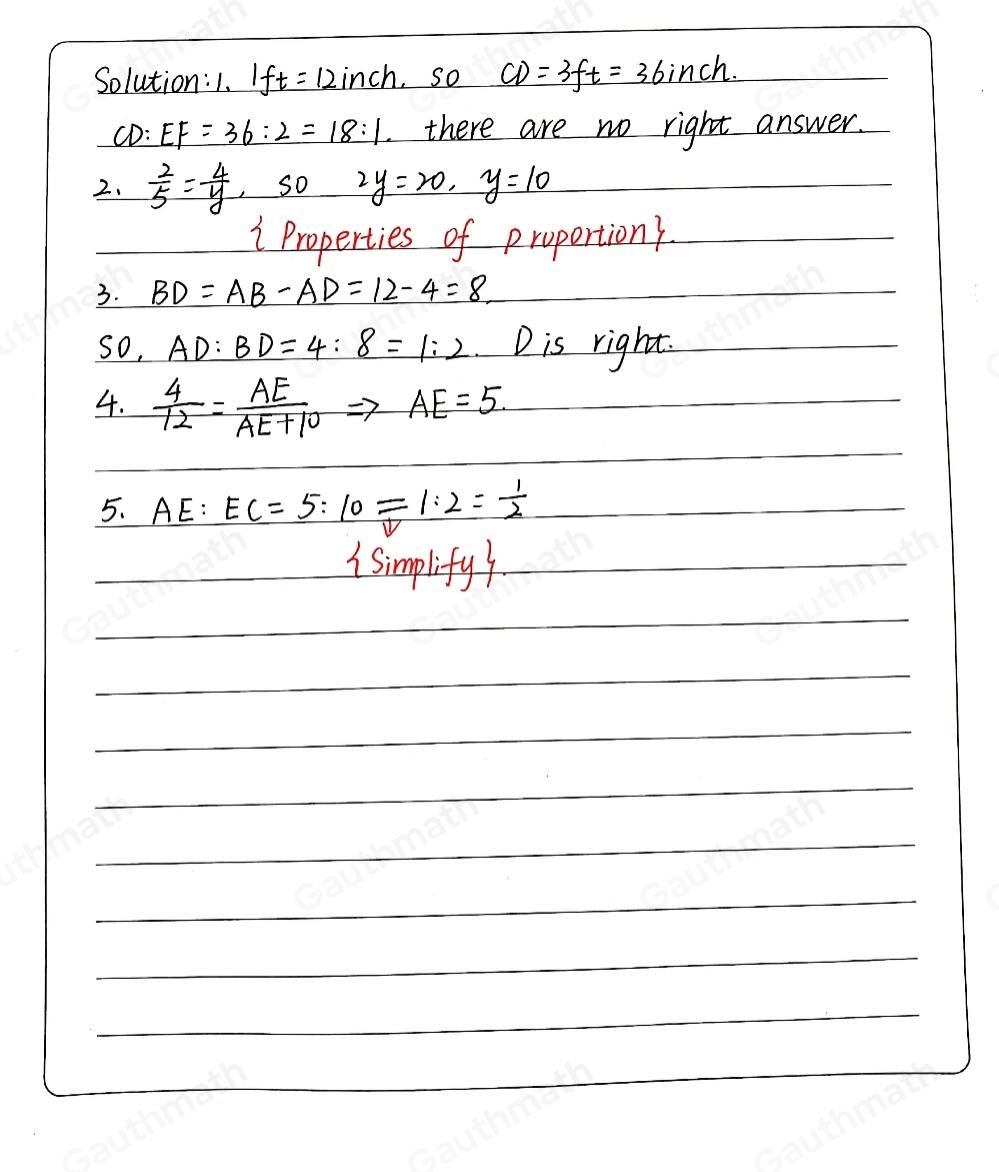 Solution: 1. 1ft = 12inch. so CD = 3ft = 36inch.
CD: EF = 36 : 2 = 18 : 1. there are no right answer.
2. 2/5 = 4/y, so 2y = 20, y = 10
{Properties of proportion}.
3. BD = AB - AD = 12 - 4 = 8.
SO, AD: BD = 4 : 8 = 1 : 2. D is right.
4. 4/12 = AE/AE+10 => AE = 5.
5. AE: EC = 5: 10 = 1:2 = 1/2
{Simplify}.
Gauthmath